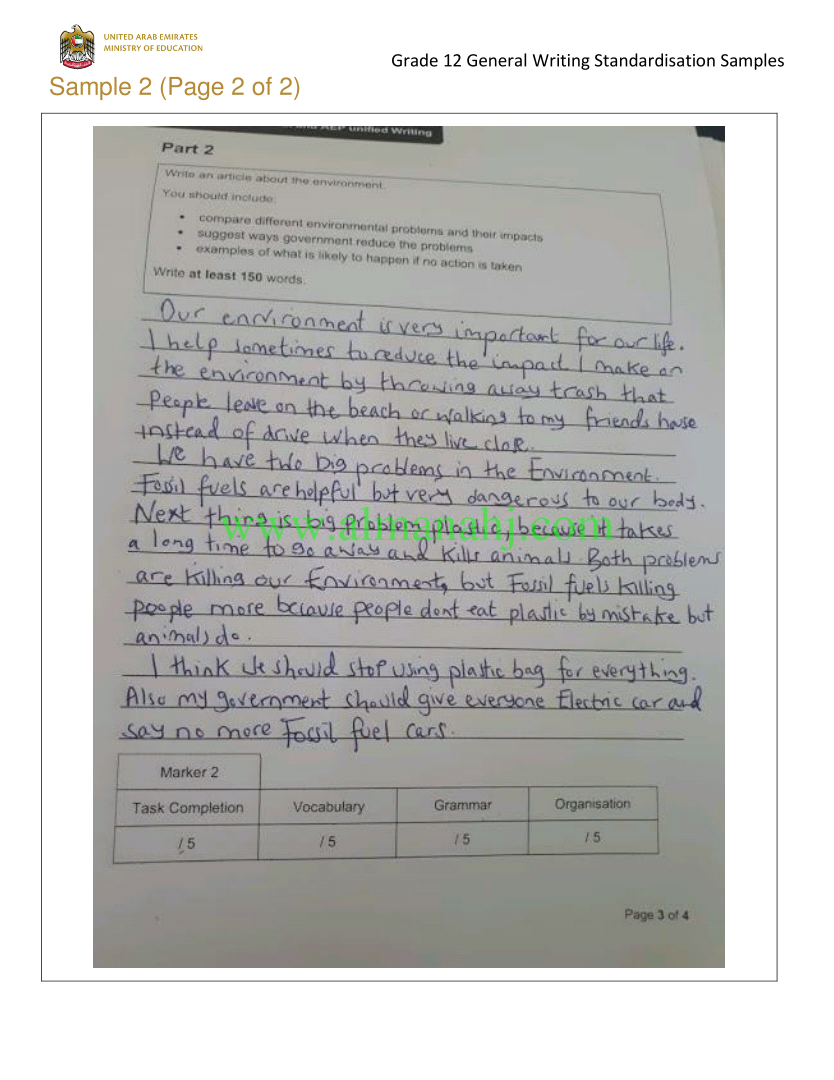 UNITED ARAB EMIRATES
MINISTRY OF EDUCATION
Grade 12 General Writing Standardisation Samples
Sample 2 (Page 2 of 2)
unified Writing
Part 2
Write an article about the environment.
You should include:
• compare different environmental problems and their impacts
• suggest ways government reduce the problems
• examples of what is likely to happen if no action is taken
Write at least 150 words.
Our environment is very important for our life.
I help sometimes to reduce the impact I make on
the environment by throwing away trash that
People leave on the beach or walking to my friends house
instead of drive when they live close.
We have two big problems in the Environment.
Fossil fuels are helpful but very dangerous to our body.
Next thing is big problem plastic, because it takes
www.almanahj.com
a long time to go away and kills animals. Both problems
are killing our Environment, but Fossil fuels killing
people more because people dont eat plastic by mistake but
animals do.
I think we should stop using plastic bag for everything.
Also my government should give everyone Electric car and
say no more Fossil fuel cars.
Marker 2
Task Completion Vocabulary Grammar Organisation
/ 5 / 5 / 5 / 5
Page 3 of 4